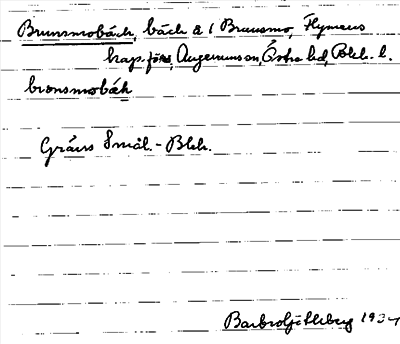 Brunsmobäck, bäck å 1 Brunsmo, Flymens
kap. förs, Augerums sn, Östra hd, Blek. l.
bronsmobäk
Gräns Smål. - Blek.
Barbro